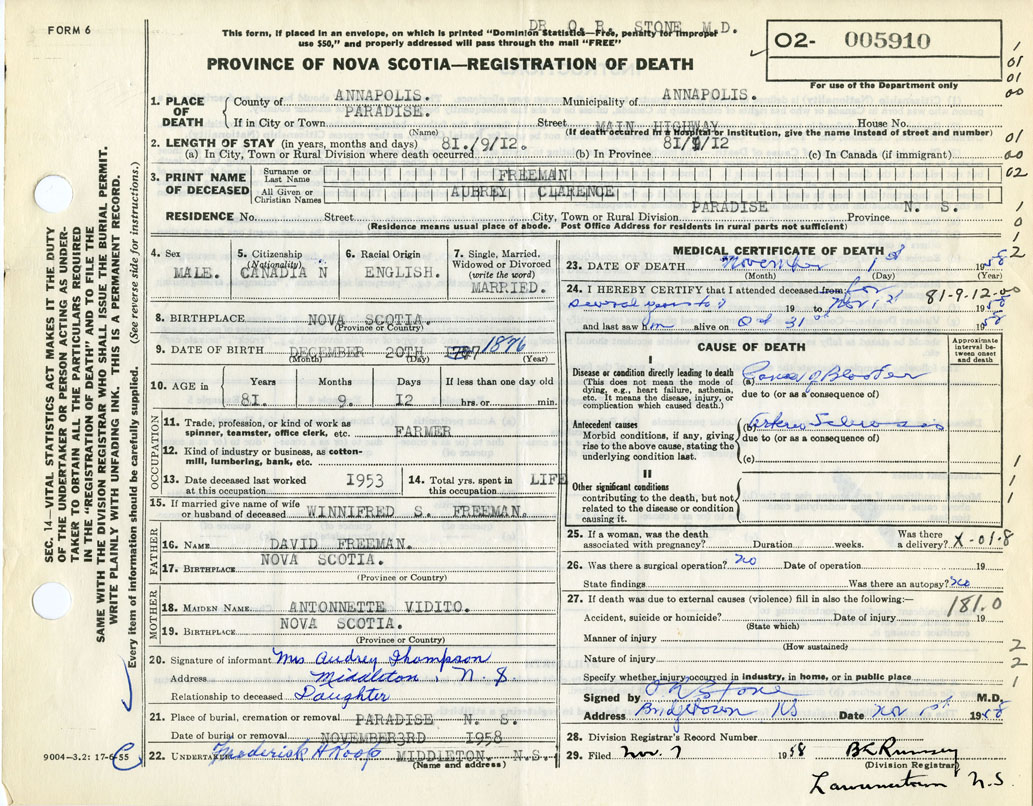 FORM 6
DR O. R. STONE M.D.
This form, if placed in an envelope, on which is printed "Dominion Statistics—Free, penalty for improper
use $50," and properly addressed will pass through the mail "FREE"
PROVINCE OF NOVA SCOTIA—REGISTRATION OF DEATH
O2- 005910
For use of the Department only
1. PLACE OF DEATH { County of ANNAPOLIS. Municipality of ANNAPOLIS.
If in City or Town PARADISE. Street MAIN HIGHWAY House No.
(Name) (If death occurred in a hospital or institution, give the name instead of street and number)
2. LENGTH OF STAY (in years, months and days) 81./9/12. 81/9/12
(a) In City, Town or Rural Division where death occurred (b) In Province (c) In Canada (if immigrant)
3. PRINT NAME OF DECEASED { Surname or Last Name FREEMAN
All Given or Christian Names AUBREY CLARENCE
RESIDENCE No. Street City, Town or Rural Division PARADISE Province N. S.
(Residence means usual place of abode. Post Office Address for residents in rural parts not sufficient)
4. Sex 5. Citizenship (Nationality) 6. Racial Origin 7. Single, Married, Widowed or Divorced (write the word)
MALE. CANADIA N ENGLISH. MARRIED.
8. BIRTHPLACE NOVA SCOTIA.
(Province or Country)
9. DATE OF BIRTH DECEMBER 20TH 1876
(Month) (Day) (Year)
10. AGE in { Years Months Days If less than one day old
81. 9. 12 hrs. or min.
OCCUPATION
11. Trade, profession, or kind of work as
spinner, teamster, office clerk, etc. FARMER
12. Kind of industry or business, as cotton-
mill, lumbering, bank, etc.
13. Date deceased last worked at this occupation 1953 14. Total yrs. spent in this occupation LIFE
15. If married give name of wife
or husband of deceased WINNIFRED S. FREEMAN.
FATHER
16. NAME DAVID FREEMAN.
17. BIRTHPLACE NOVA SCOTIA.
(Province or Country)
MOTHER
18. MAIDEN NAME ANTONNETTE VIDITO.
19. BIRTHPLACE NOVA SCOTIA.
(Province or Country)
20. Signature of informant Mrs Audrey Thompson
Address Middleton, N. S
Relationship to deceased Daughter
21. Place of burial, cremation or removal PARADISE N. S.
Date of burial or removal NOVEMBER3RD 1958
22. UNDERTAKER Frederick H Roop MIDDLETON. N.S.
(Name and address)
9004—3.2: 17-6-55
MEDICAL CERTIFICATE OF DEATH
23. DATE OF DEATH November 1st 1958
(Month) (Day) (Year)
24. I HEREBY CERTIFY that I attended deceased from for
several years 19 to Nov 1st 1958
81-9-12-00
and last saw him alive on Oct 31st 1958
CAUSE OF DEATH
Approximate interval between onset and death
I
Disease or condition directly leading to death
(This does not mean the mode of
dying, e.g., heart failure, asthenia,
etc. It means the disease, injury, or
complication which caused death.)
(a) Cancer of Bladder
due to (or as a consequence of)
Antecedent causes
Morbid conditions, if any, giving
rise to the above cause, stating the
underlying condition last.
(b) Arterio Sclerosis
due to (or as a consequence of)
(c)
II
Other significant conditions
contributing to the death, but not
related to the disease or condition
causing it.
25. If a woman, was the death
associated with pregnancy? Duration weeks. Was there a delivery? X-01-8
26. Was there a surgical operation? No Date of operation 19
State findings Was there an autopsy? No
27. If death was due to external causes (violence) fill in also the following:— 181.0
Accident, suicide or homicide? Date of injury 19
(State which)
Manner of injury
(How sustained)
Nature of injury
Specify whether injury occurred in industry, in home, or in public place
Signed by O R Stone M.D.
Address Bridgetown NS Date Nov 1st 1958
28. Division Registrar's Record Number
29. Filed Nov. 7 1958 B L Rumsey
(Division Registrar)
Lawrencetown N.S.
SEC. 14—VITAL STATISTICS ACT MAKES IT THE DUTY
OF THE UNDERTAKER OR PERSON ACTING AS UNDER-
TAKER TO OBTAIN ALL THE PARTICULARS REQUIRED
IN THE "REGISTRATION OF DEATH" AND TO FILE THE
SAME WITH THE DIVISION REGISTRAR WHO SHALL ISSUE THE BURIAL PERMIT.
WRITE PLAINLY WITH UNFADING INK. THIS IS A PERMANENT RECORD.
Every item of information should be carefully supplied. (See reverse side for instructions.)
1
01
01
00
01
00
02
1
0
1
2
1
1
1
0
2
2
1